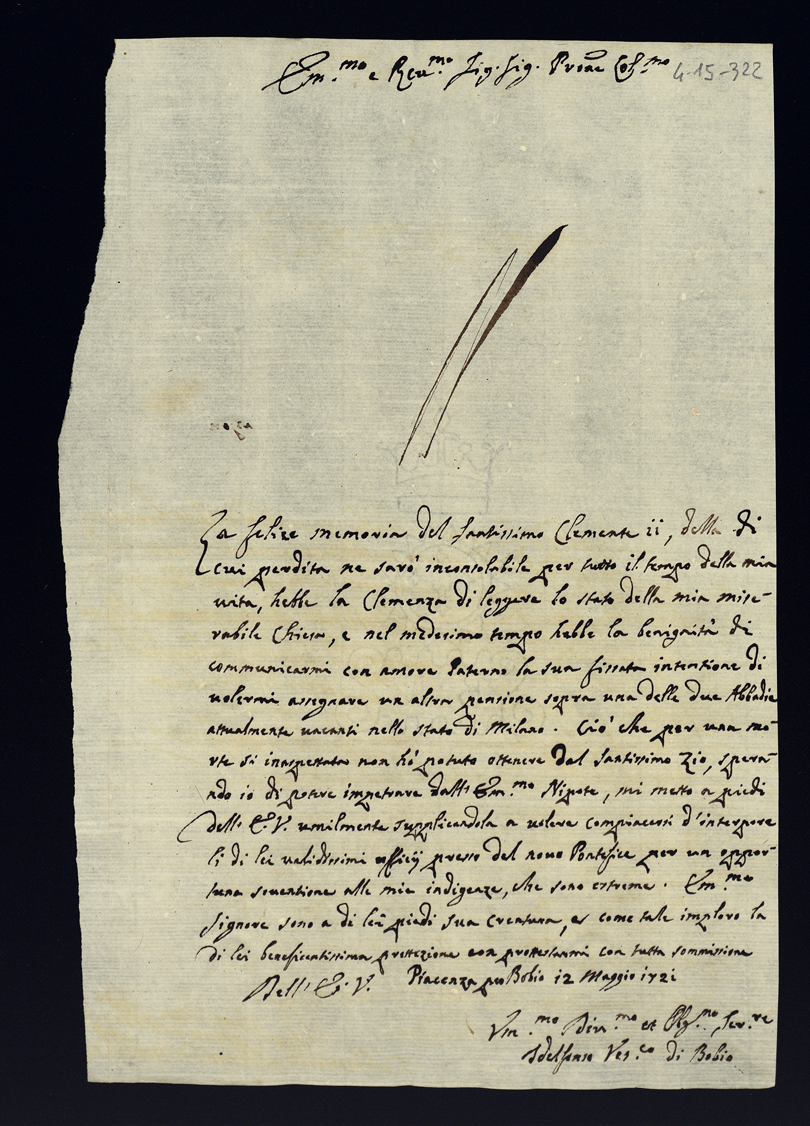 Em.mo e Reu.mo Sig. Sig. Prone Col.mo 4-15-322
La felice memoria del santissimo Clemente ii, della di
cui perdita ne sarò inconsolabile per tutto il tempo della mia
uita, hebbe la Clemenza di leggere lo stato della mia mise-
rabile Chiesa, e nel medesimo tempo hebbe la benignità di
communicarmi con amore Paterno la sua fissata intentione di
uolermi assegnare un altra pensione sopra una delle due Abbadie
attualmente uacanti nello stato di Milano. Ciò che per una mo-
rte si inaspettata non hò potuto ottenere dal santissimo Zio, spera-
ndo io di potere impetrare dall' Em.mo Nipote, mi metto a piedi
dell' E. V. umilmente supplicandola a uolere compiacersi d'interpore
li di lei ualidissimi officij presso del nouo Pontefice per un oppor-
tuna souentione alle mie indigenze, che sono estreme. Em.mo
Signore sono a di lei piedi sua Creatura, e come tale imploro la
di lei beneficentissima protezione con protestarmi con tutta sommissione
Dell' E. V. Piacenza per Bobio i2 Maggio i72i
Vm.mo Diu.mo et Obl.mo Ser.re
Idelfonso Ves.co di Bobio